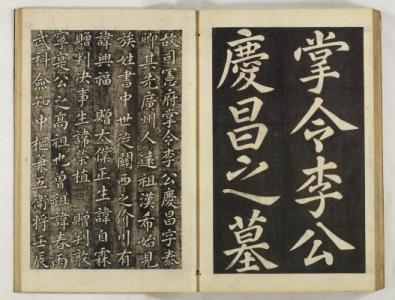 掌令李公
慶昌之墓
故司憲府掌令李公慶昌字泰
卿其先廣州人遠祖漢希始見
族姓書中世徙關西之价川有
諱興福 贈太僕正生諱自霖
贈判決事生諱榮植 贈判敦
寧寔公之高祖也曾祖諱春雨
武科僉知中樞兼五衛將壬辰